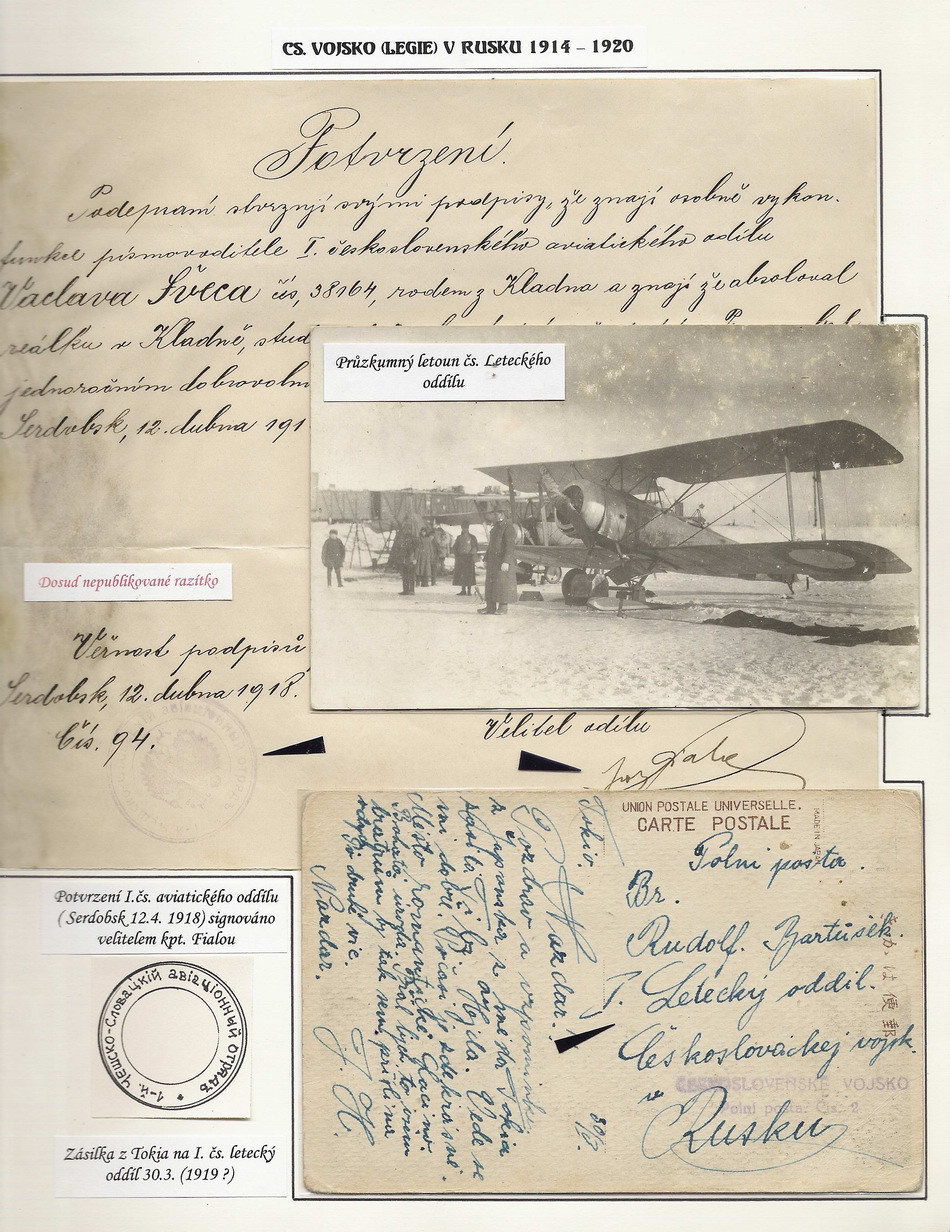 CS. VOJSKO (LEGIE) V RUSKU 1914 – 1920
Potvrzení.
Podepsaní stvrzují svými podpisy, že znají osobně vykon.
funkce písmovoditele I. československého aviatického odílu
Vaclava Šveca čís, 38164, rodem z Kladna a znají že absoloval
reálku v Kladně, stud
jednoročním dobrovoln
Serdobsk, 12. dubna 191
Průzkumný letoun čs. Leteckého
oddílu
Dosud nepublikované razítko
Věrnost podpisů
Serdobsk, 12. dubna 1918.
Čís. 94.
Velitel odílu
Fiala
Potvrzení I.čs. aviatického oddílu
( Serdobsk 12.4. 1918) signováno
velitelem kpt. Fialou
1-й ЧЕШСКО-СЛОВАЦКІЙ АВІАЦІОННЫЙ ОТРЯДЪ
Zásilka z Tokia na I. čs. letecký
oddíl 30.3. (1919 ?)
UNION POSTALE UNIVERSELLE.
CARTE POSTALE
MADE IN JAPAN
Polní pošta.
Br.
Rudolf. Bartůšek.
I. Letecký oddíl.
Československej vojsk.
ČESKOSLOVENSKÉ VOJSKO
Polní pošta. Čís. 2
v
Rusku
きかは便郵
Tokio.
Nazdar!
Pozdrav a vzpomínku
z Japonska, z města Tokia
zasílá Ti Tvůj Hojda. Vede se
mi dobře. Počasí je překrásné.
Město romantické
bratrům
Nazdar.
J. H.
30/3.